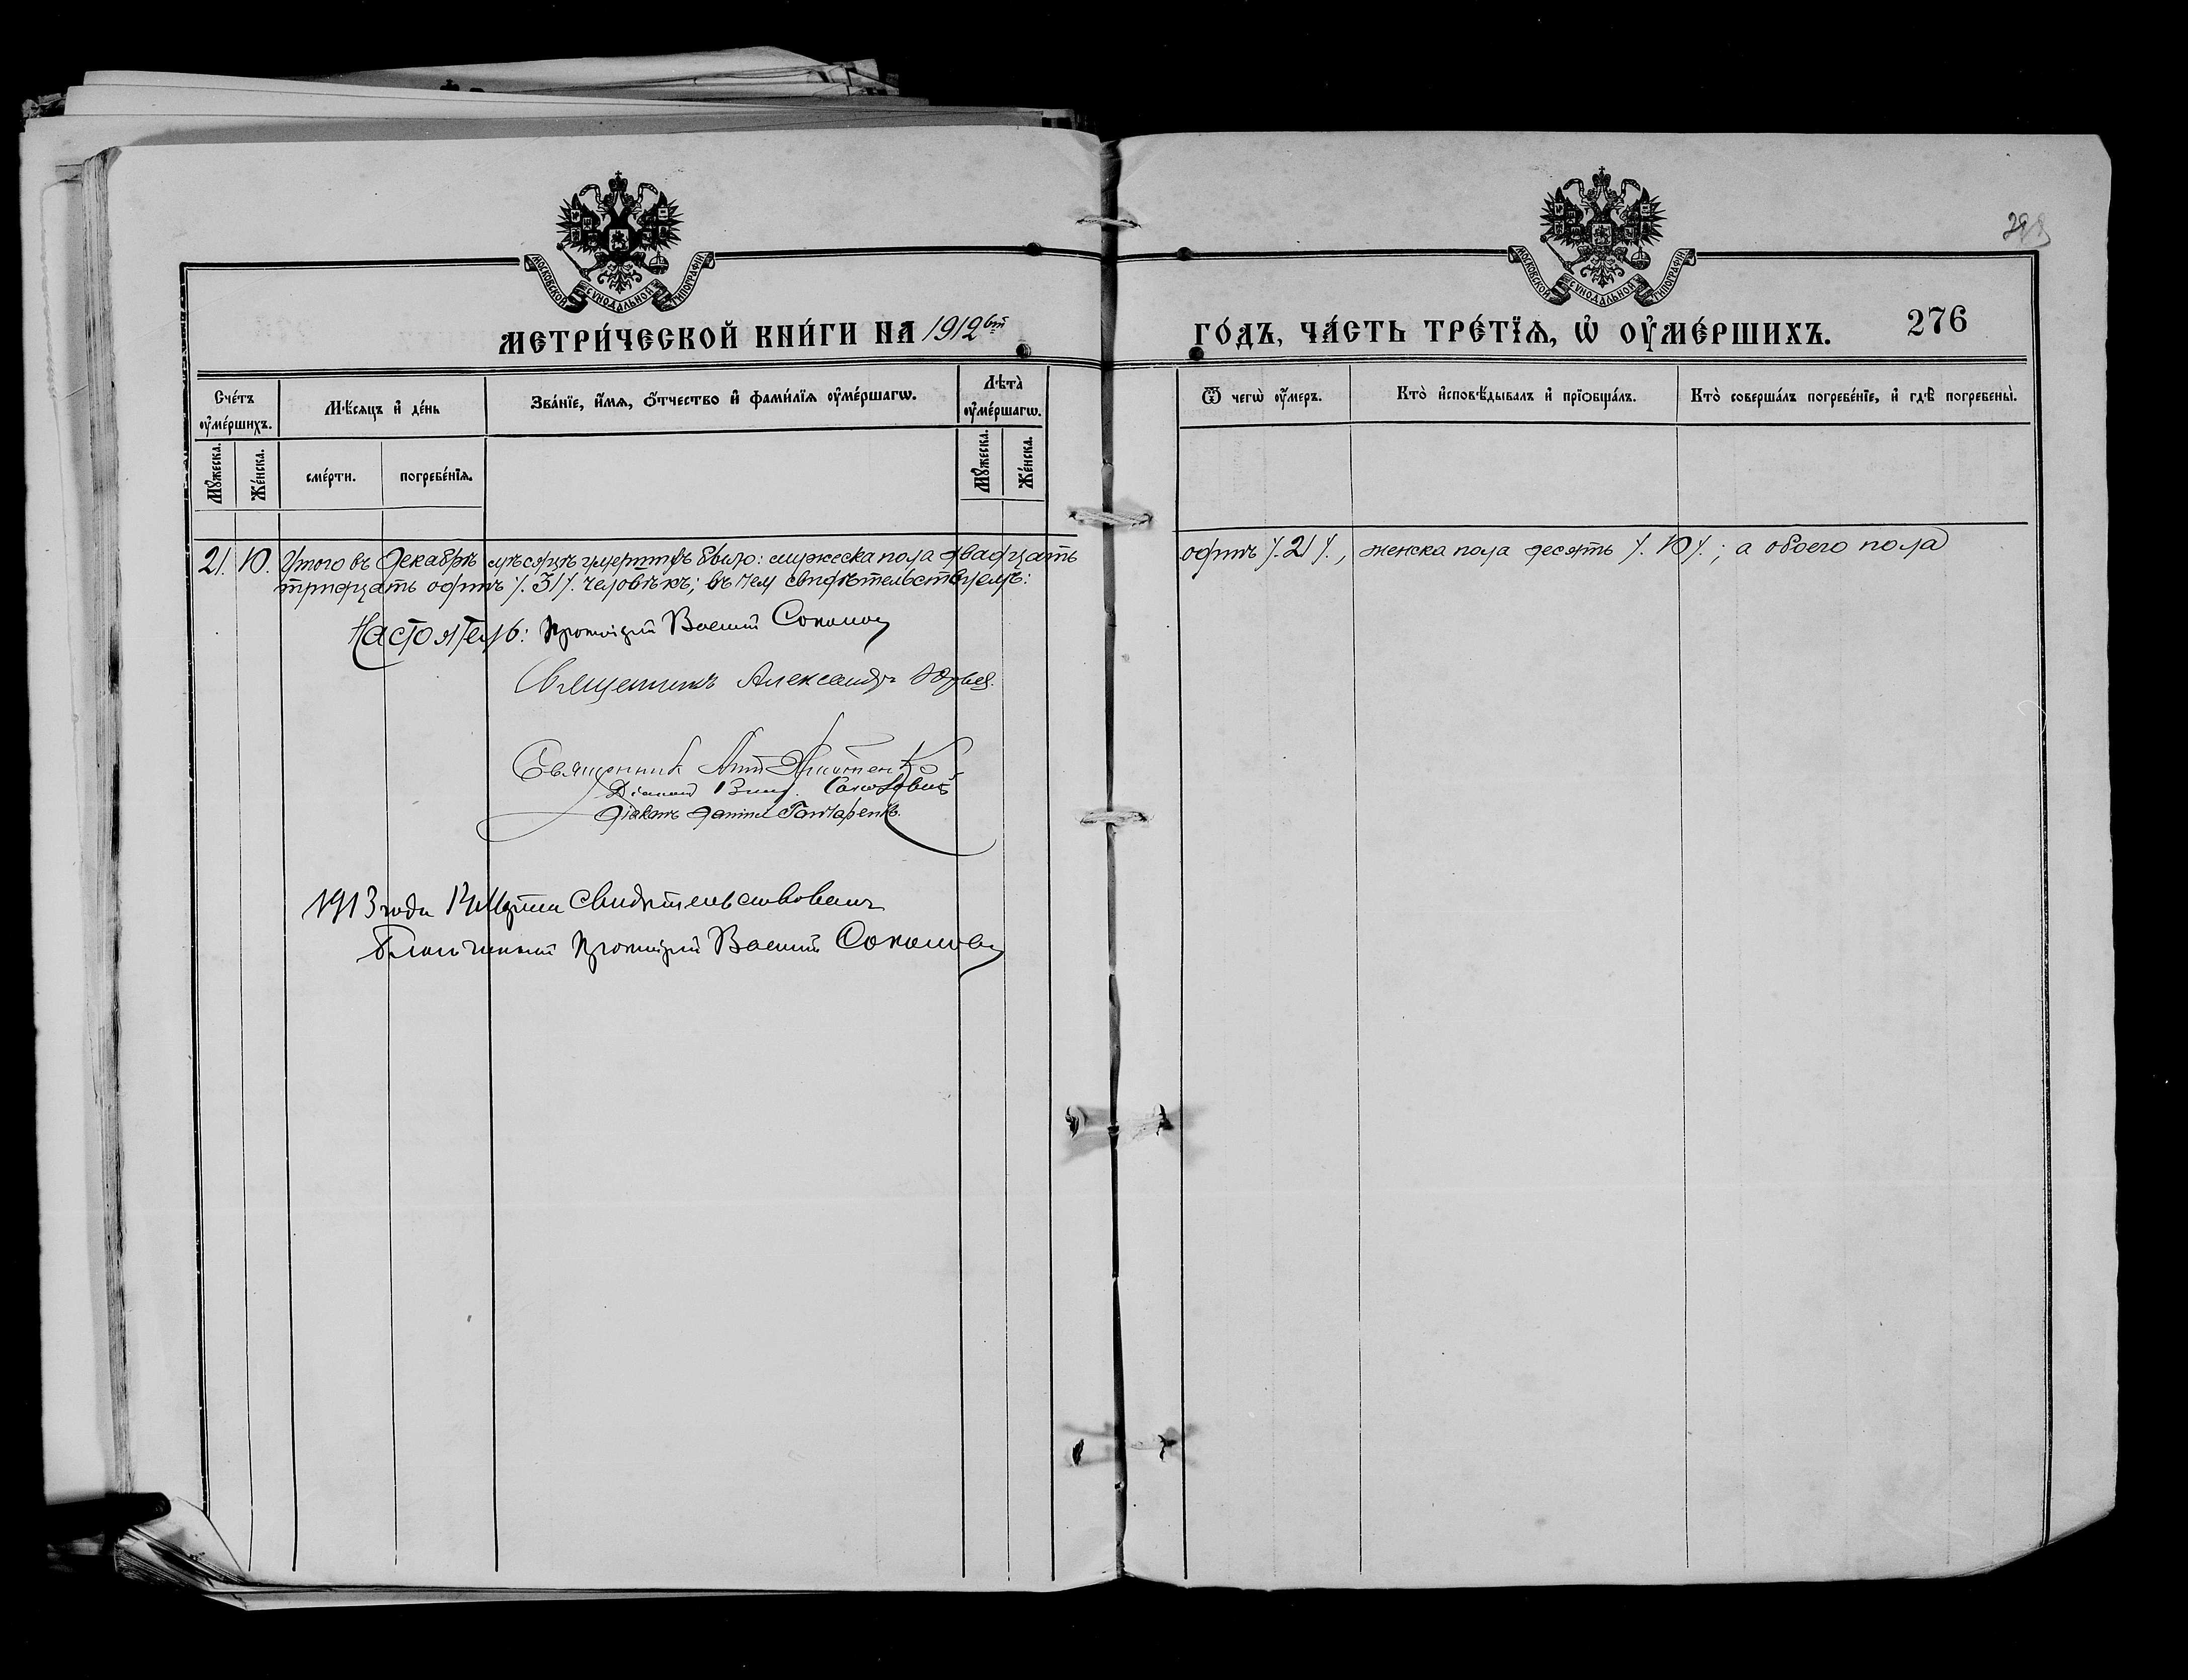 МОСКОВСКОЙ СѴНОДАЛЬНОЙ ТИПОГРАФІИ
МОСКОВСКОЙ СѴНОДАЛЬНОЙ ТИПОГРАФІИ
МЕТРИ́ЧЕСКОЙ КНИ́ГИ НА 1912 ый
ГО́ДЪ, ЧА́СТЬ ТРЕ́ТЇѦ, Ѡ҆ ОУ҆МЕ́РШИХЪ.
276
Сче́тъ оу҆ме́ршихъ.
Мꙋ́жеска.
Же́нска.
Мѣ́сѧцъ и҆ де́нь
сме́рти.
погребе́нїѧ.
Зва́нїе, и҆́мѧ, ѻ҆́тчество и҆ фами́лїѧ оу҆ме́ршагѡ.
Лѣ́та̀ оу҆ме́ршагѡ.
Мꙋ́жеска.
Же́нска.
Ѿ чегѡ̀ оу҆́меръ.
Кто̀ и҆сповѣ́дывалъ и҆ прїѻбща́лъ.
Кто̀ соверша́лъ погребе́нїе, и҆ гдѣ̀ погребены̀.
21. 10. Итого въ Декабрѣ мѣсяцѣ умершихъ было: мужеска пола двадцать
одинъ /. 21 /., женска пола десять /. 10 /.; а обоего пола
тридцать одинъ /. 31 /. человѣкъ; въ чем свидѣтельствуемъ:
Настоятель: Протоіерей Василій Соколов
Священникъ Александръ
Священник Ант.
Діаконъ
Діаконъ Даніил Гончаренко.
1913 года Марта свидѣтельствовалъ
Благочинный Протоіерей Василій Соколовъ